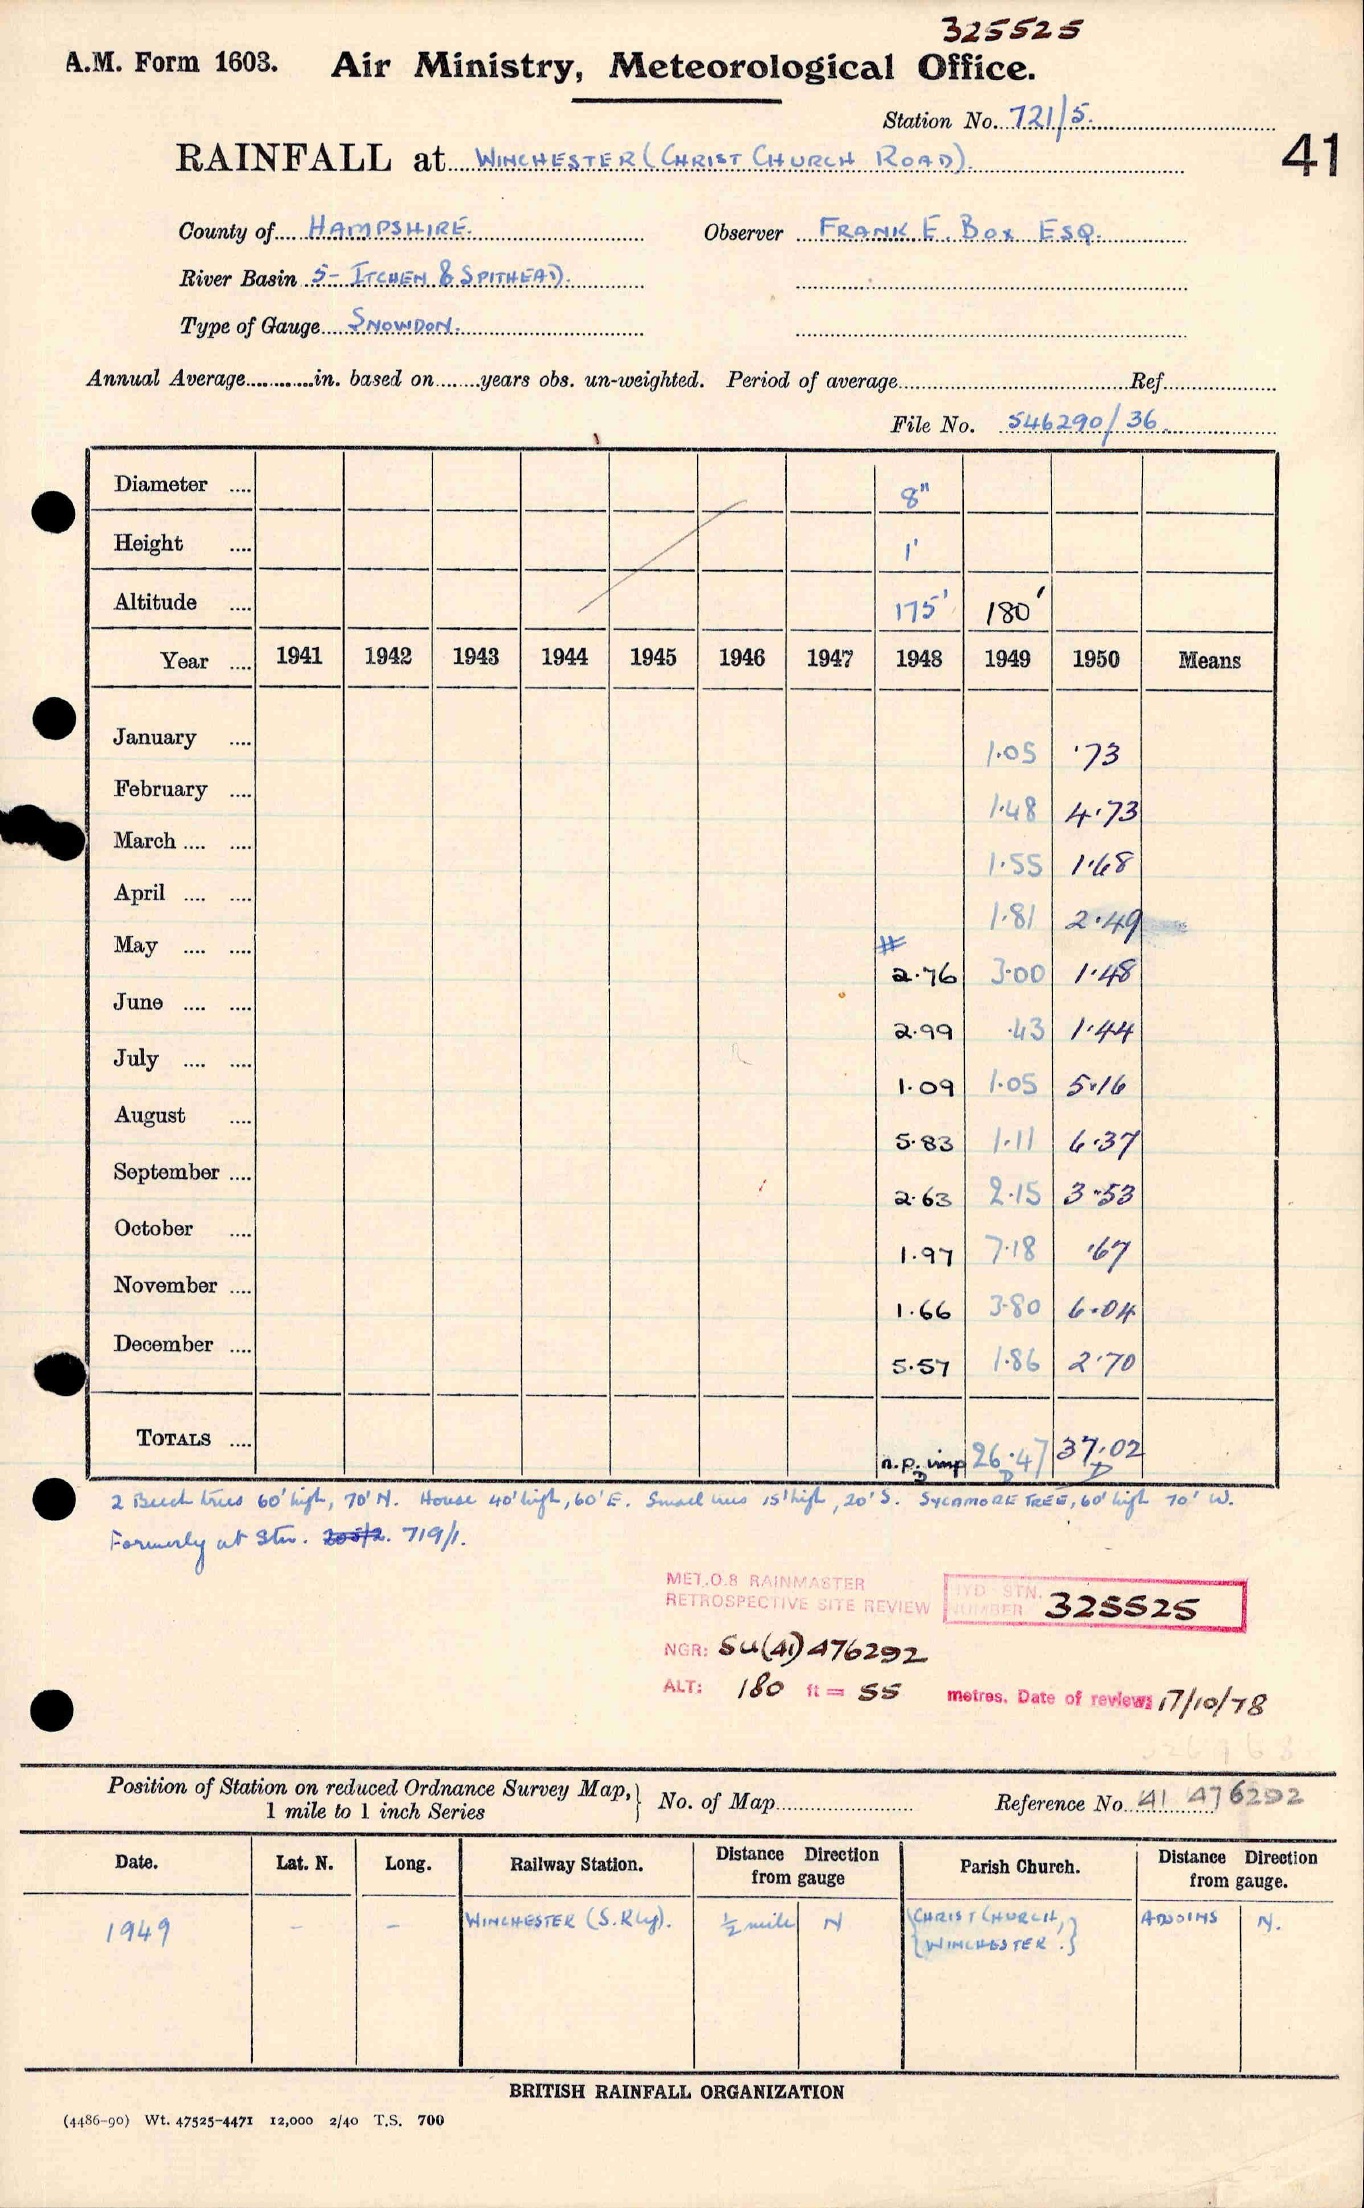 325525
A.M. Form 1603. Air Ministry, Meteorological Office.
Station No. 721/5.
41
RAINFALL at WINCHESTER (CHRIST CHURCH ROAD).
County of HAMPSHIRE. Observer FRANK E. BOX ESQ.
River Basin 5- ITCHEN & SPITHEAD.
Type of Gauge SNOWDON.
Annual Average............in. based on........years obs. un-weighted. Period of average........Ref........
File No. 546290/36.
Diameter .... 8"
Height .... 1'
Altitude .... 175' 180'
Year .... 1941 1942 1943 1944 1945 1946 1947 1948 1949 1950 Means
January .... 1.05 .73
February .... 1.48 4.73
March .... .... 1.55 1.68
April .... .... 1.81 2.49
May .... .... # 2.76 3.00 1.48
June .... .... 2.99 .43 1.44
July .... .... 1.09 1.05 5.16
August .... 5.83 1.11 6.37
September .... 2.63 2.15 3.53
October .... 1.97 7.18 .67
November .... 1.66 3.80 6.04
December .... 5.57 1.86 2.70
TOTALS .... n.p. imp 26.47 37.02
D D D
2 Beech trees 60' high, 70' N. House 40' high, 60' E. Small trees 15' high, 20' S. SYCAMORE TREE, 60' high 70' W.
Formerly at Stn. 719/1.
MET.O.8 RAINMASTER
RETROSPECTIVE SITE REVIEW
HYD STN. NUMBER 325525
NGR: SU(41)476292
ALT: 180 ft = 55 metres. Date of review: 17/10/78
Position of Station on reduced Ordnance Survey Map, 1 mile to 1 inch Series } No. of Map........ Reference No. 41 476292
Date. Lat. N. Long. Railway Station. Distance Direction from gauge Parish Church. Distance Direction from gauge.
1949 - - WINCHESTER (S.Rly). ½ mile N {CHRIST CHURCH, WINCHESTER.} ADJOINS N.
BRITISH RAINFALL ORGANIZATION
(4486-90) Wt. 47525-4471 12,000 2/40 T.S. 700